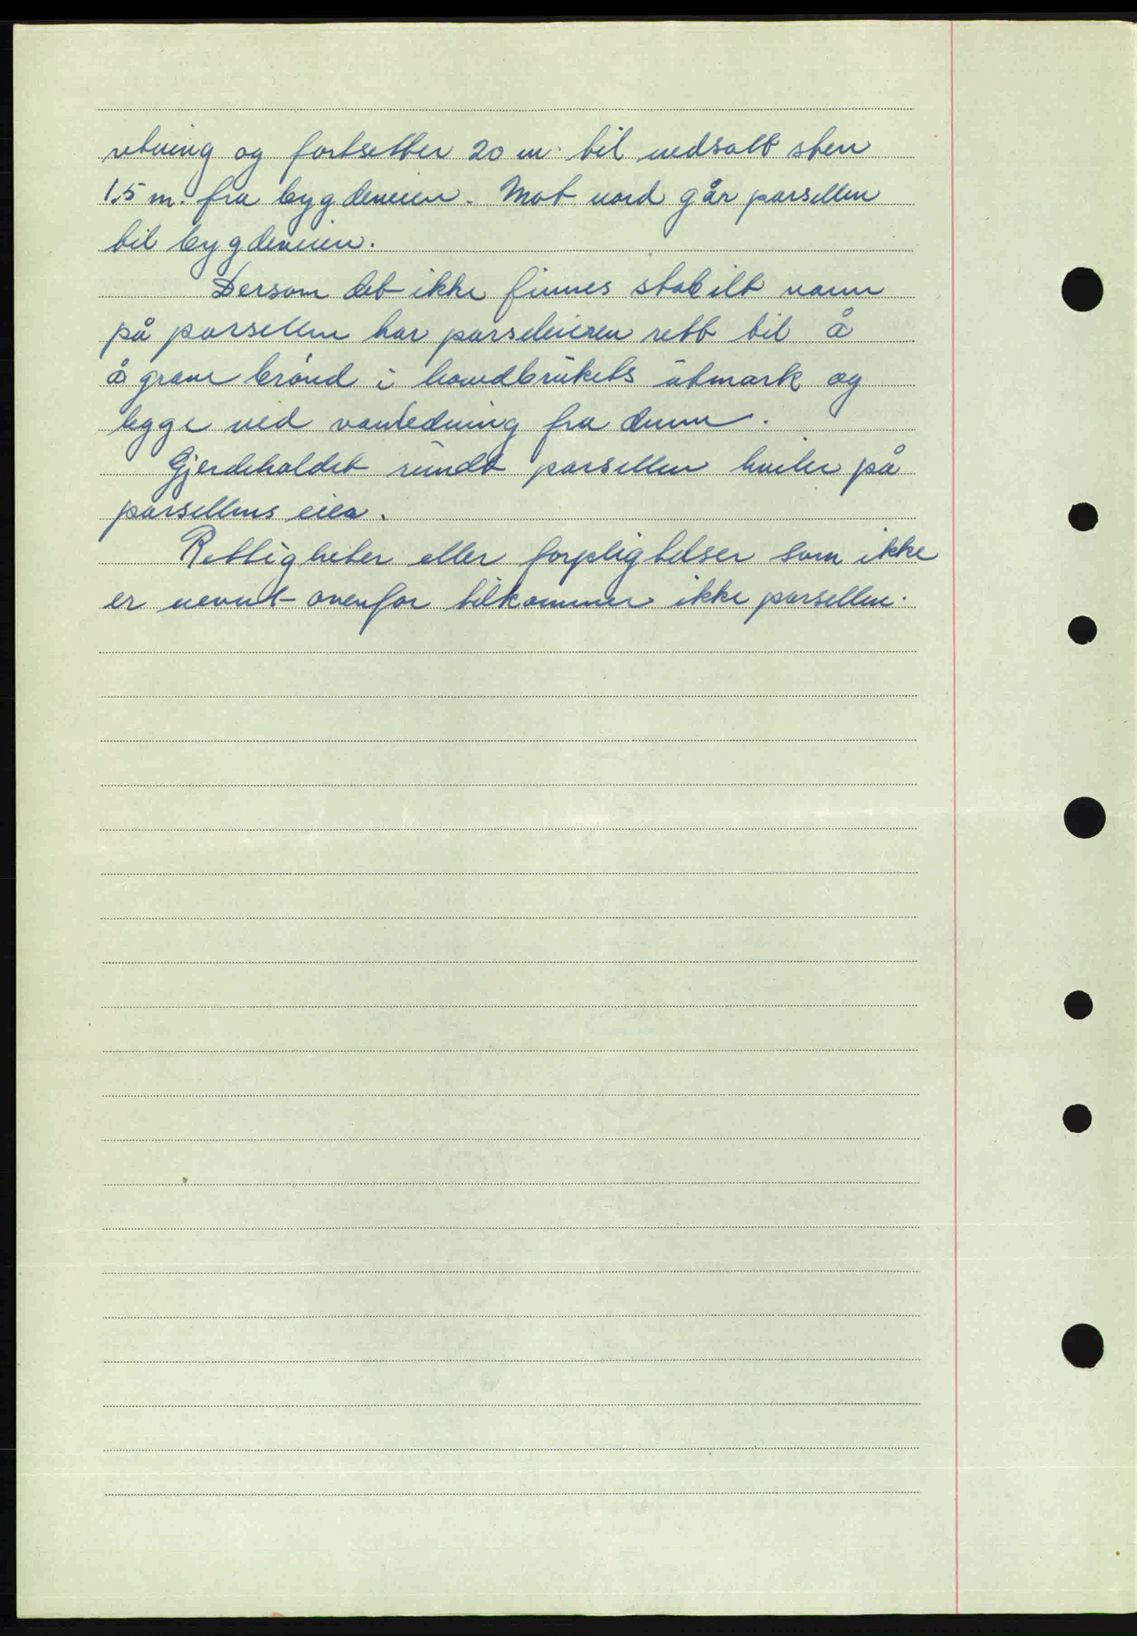 retning og fortsetter 20 m. til nedsatt sten
1.5 m. fra bygdeveien. Mot nord går parsellen
til bygdeveien.
Dersom det ikke finnes stabilt vann
på parsellen har parseleieren rett til å
å grave brønd i hovedbrukets utmark og
legge ned vanledning fra denne.
Gjerdeholdet rundt parsellen hviler på
parsellens eier.
Rettigheter eller forpligtelser som ikke
er nevnt ovenfor tilkommer ikke parsellen.